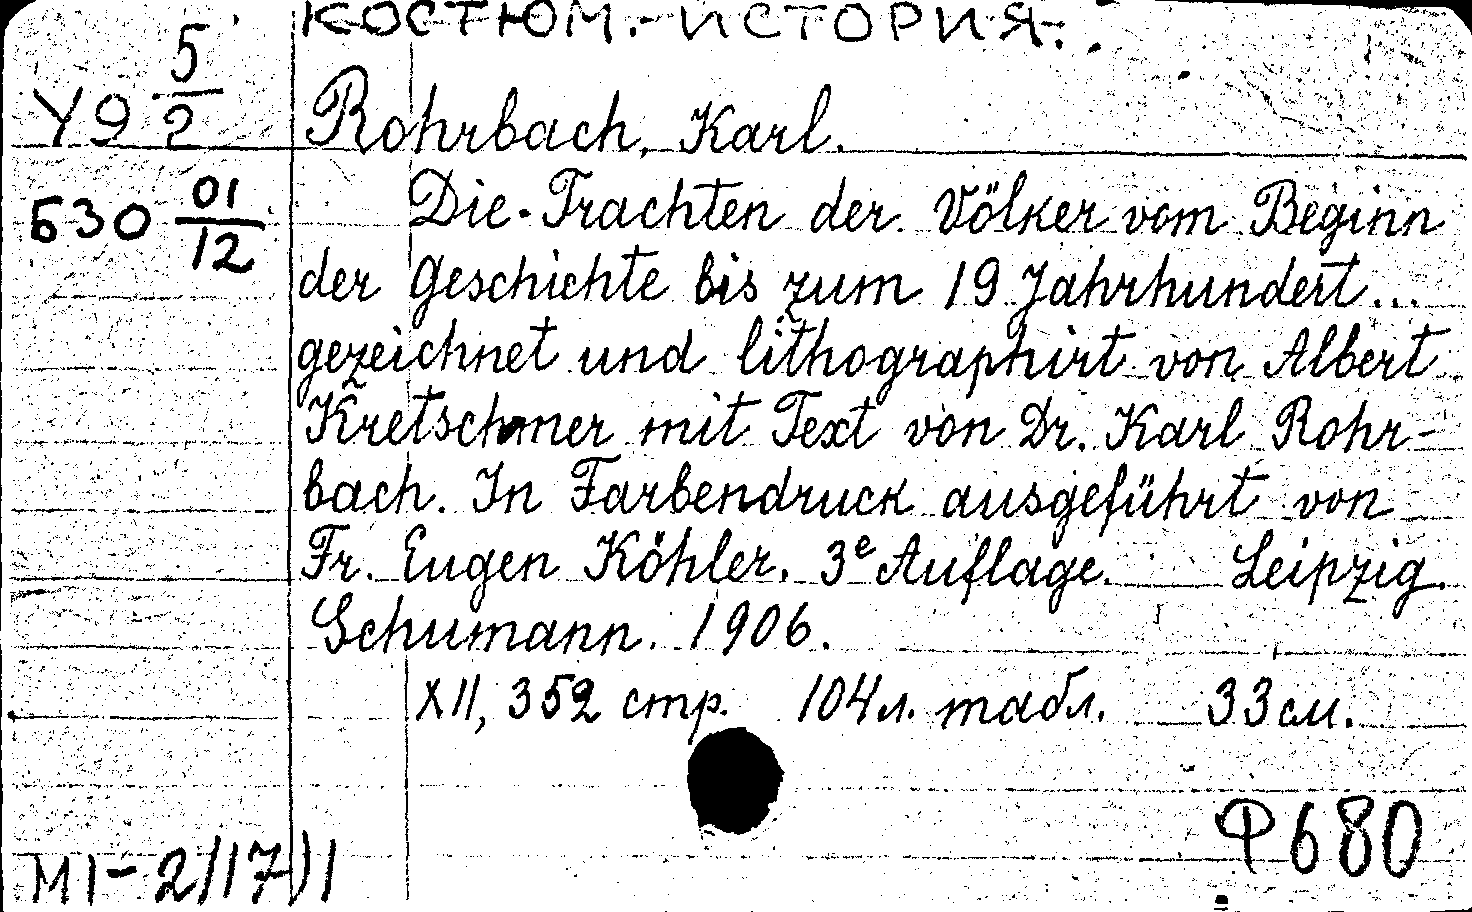 КОСТЮМ.-ИСТОРИЯ.
У9 5/2
Rohrbach, Karl.
Б30 01/12
Die Trachten der Völker vom Beginn
der Geschichte bis zum 19 Jahrhundert...
gezeichnet und lithographirt von Albert
Kretschmer mit Text von Dr. Karl Rohr-
bach. In Farbendruck ausgeführt von
Fr. Eugen Köhler. 3e Auflage. Leipzig.
Schumann. 1906.
XII, 352 стр. 104 л. табл. 33 см.
Ф680
М1-2/17)1